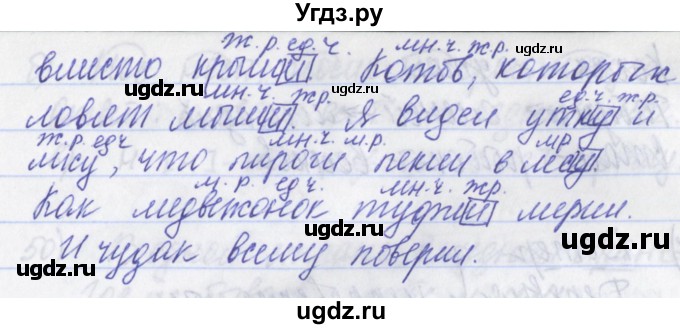 Угдз.ру
ж.р. ед.ч. мн.ч. ж.р.
вместо крыши Котов, которых
мн.ч. ж.р. ед.ч. ж.р.
ловят мыши. Я видел утку и
ж.р. ед.ч мн.ч. м.р. м.р
лису, что пироги пекли в лесу.
м.р. ед.ч. мн.ч. ж.р.
Как медвежонок туфли мерил.
И чудак всему поверил.
uGdz.ru
uGdz.ru
uGdz.ru
uGdz.ru
uGdz.ru
uGdz.ru
uGdz.ru
uGdz.ru
uGdz.ru
uGdz.ru
uGdz.ru